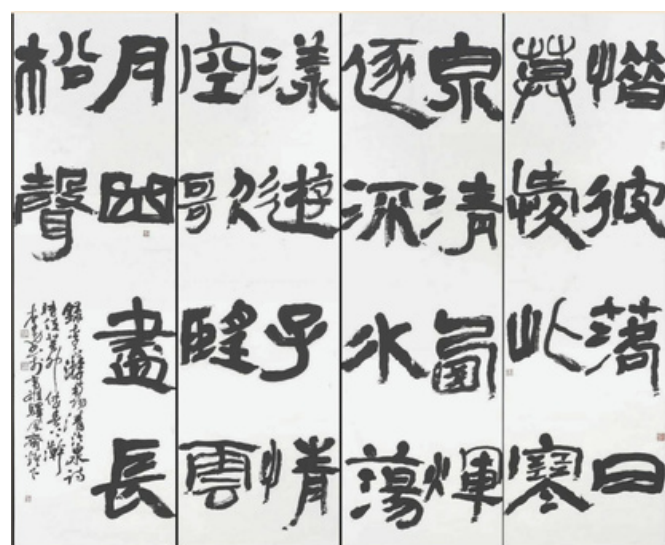 惜彼落日
莫此寒
泉清西輝
逐流水蕩
漾遊子情
空歌望雲
月曲盡長
松聲
錄李白遊南陽清泠泉詩